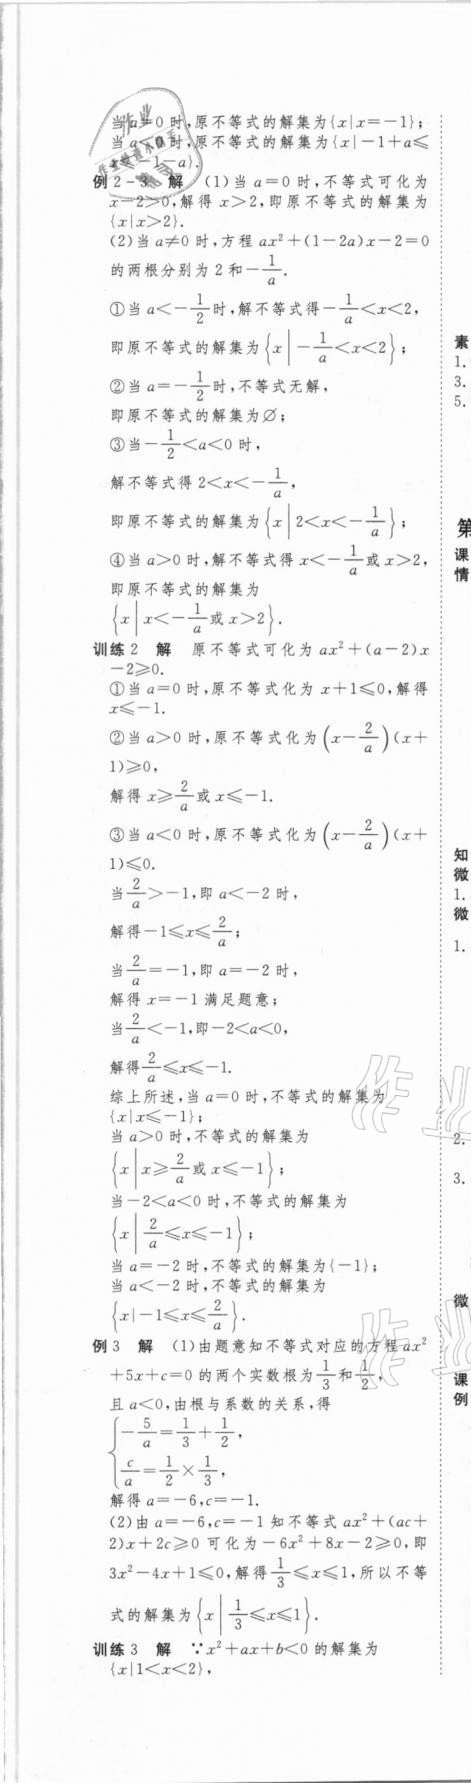 当a=0时,原不等式的解集为{x|x=-1};
当a<0时,原不等式的解集为{x|-1+a≤
-1-a}.
例2-3 解 (1)当a=0时,不等式可化为
x-2>0,解得x>2,即原不等式的解集为
{x|x>2}.
(2)当a≠0时,方程ax²+(1-2a)x-2=0
的两根分别为2和-1/a.
①当a<-1/2时,解不等式得-1/a<x<2,
即原不等式的解集为{x|-1/a<x<2};
②当a=-1/2时,不等式无解,
即原不等式的解集为∅;
③当-1/2<a<0时,
解不等式得2<x<-1/a,
即原不等式的解集为{x|2<x<-1/a};
④当a>0时,解不等式得x<-1/a或x>2,
即原不等式的解集为
{x|x<-1/a或x>2}.
训练2 解 原不等式可化为ax²+(a-2)x
-2≥0.
①当a=0时,原不等式化为x+1≤0,解得
x≤-1.
②当a>0时,原不等式化为(x-2/a)(x+
1)≥0,
解得x≥2/a或x≤-1.
③当a<0时,原不等式化为(x-2/a)(x+
1)≤0.
当2/a>-1,即a<-2时,
解得-1≤x≤2/a;
当2/a=-1,即a=-2时,
解得x=-1满足题意;
当2/a<-1,即-2<a<0,
解得2/a≤x≤-1.
综上所述,当a=0时,不等式的解集为
{x|x≤-1};
当a>0时,不等式的解集为
{x|x≥2/a或x≤-1};
当-2<a<0时,不等式的解集为
{x|2/a≤x≤-1};
当a=-2时,不等式的解集为{-1};
当a<-2时,不等式的解集为
{x|-1≤x≤2/a}.
例3 解 (1)由题意知不等式对应的方程ax²
+5x+c=0的两个实数根为1/3和1/2,
且a<0,由根与系数的关系,得
{-5/a=1/3+1/2,
c/a=1/2×1/3,
解得a=-6,c=-1.
(2)由a=-6,c=-1知不等式ax²+(ac+
2)x+2c≥0可化为-6x²+8x-2≥0,即
3x²-4x+1≤0,解得1/3≤x≤1,所以不等
式的解集为{x|1/3≤x≤1}.
训练3 解 ∵x²+ax+b<0的解集为
{x|1<x<2},
素
1.
3.
5.
第
课
情
知
微
1.
微
1.
2.
3.
微
课
例
作业
作业